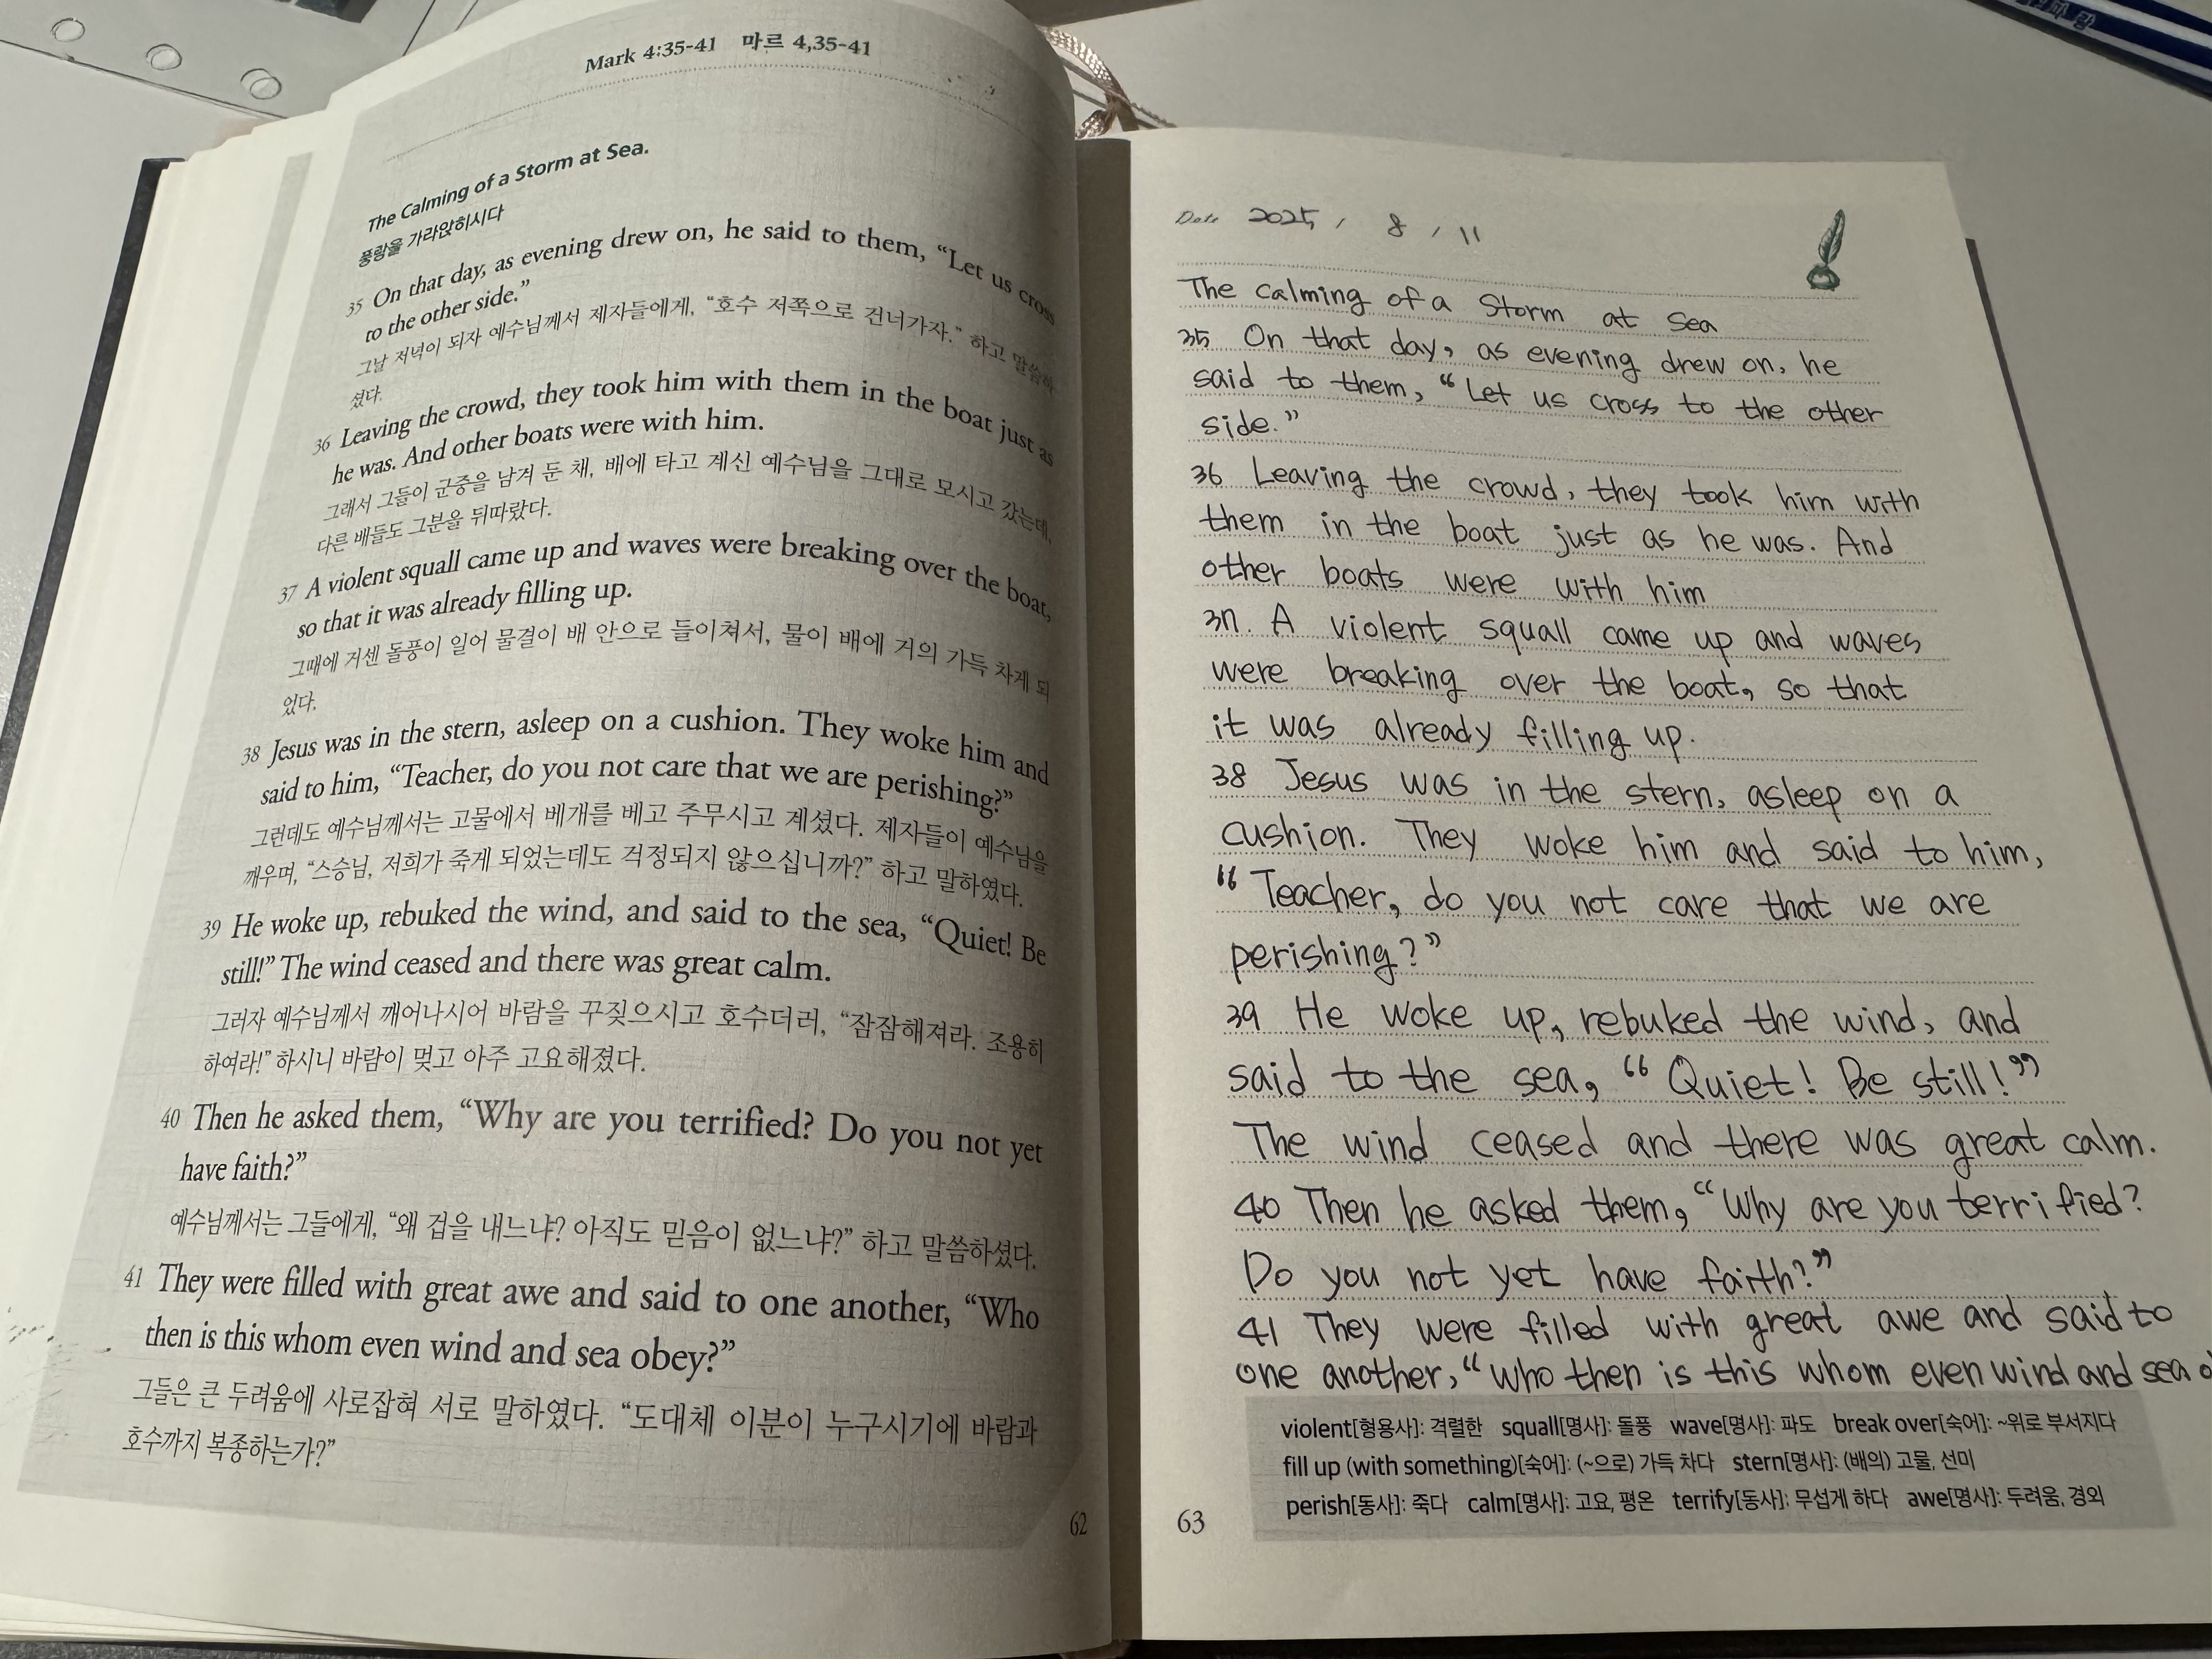 Mark 4:35-41 마르 4,35-41
The Calming of a Storm at Sea.
풍랑을 가라앉히시다
35 On that day, as evening drew on, he said to them, “Let us cross
to the other side.”
그날 저녁이 되자 예수님께서 제자들에게, “호수 저쪽으로 건너가자.” 하고 말씀하
셨다.
36 Leaving the crowd, they took him with them in the boat just as
he was. And other boats were with him.
그래서 그들이 군중을 남겨 둔 채, 배에 타고 계신 예수님을 그대로 모시고 갔는데,
다른 배들도 그분을 뒤따랐다.
37 A violent squall came up and waves were breaking over the boat,
so that it was already filling up.
그때에 거센 돌풍이 일어 물결이 배 안으로 들이쳐서, 물이 배에 거의 가득 차게 되
었다.
38 Jesus was in the stern, asleep on a cushion. They woke him and
said to him, “Teacher, do you not care that we are perishing?”
그런데도 예수님께서는 고물에서 베개를 베고 주무시고 계셨다. 제자들이 예수님을
깨우며, “스승님, 저희가 죽게 되었는데도 걱정되지 않으십니까?” 하고 말하였다.
39 He woke up, rebuked the wind, and said to the sea, “Quiet! Be
still!” The wind ceased and there was great calm.
그러자 예수님께서 깨어나시어 바람을 꾸짖으시고 호수더러, “잠잠해져라. 조용히
하여라!” 하시니 바람이 멎고 아주 고요해졌다.
40 Then he asked them, “Why are you terrified? Do you not yet
have faith?”
예수님께서는 그들에게, “왜 겁을 내느냐? 아직도 믿음이 없느냐?” 하고 말씀하셨다.
41 They were filled with great awe and said to one another, “Who
then is this whom even wind and sea obey?”
그들은 큰 두려움에 사로잡혀 서로 말하였다. “도대체 이분이 누구시기에 바람과
호수까지 복종하는가?”
62
Date 2025 / 8 / 11
The Calming of a Storm at Sea
35 On that day, as evening drew on, he
said to them, “Let us cross to the other
side.”
36 Leaving the crowd, they took him with
them in the boat just as he was. And
other boats were with him
37. A violent squall came up and waves
were breaking over the boat, so that
it was already filling up.
38 Jesus was in the stern, asleep on a
cushion. They woke him and said to him,
“Teacher, do you not care that we are
perishing?”
39 He woke up, rebuked the wind, and
said to the sea, “Quiet! Be still!”
The wind ceased and there was great calm.
40 Then he asked them, “Why are you terrified?
Do you not yet have faith?”
41 They were filled with great awe and said to
one another, “Who then is this whom even wind and sea
violent[형용사]: 격렬한 squall[명사]: 돌풍 wave[명사]: 파도 break over[숙어]: ~위로 부서지다
fill up (with something)[숙어]: (~으로) 가득 차다 stern[명사]: (배의) 고물, 선미
perish[동사]: 죽다 calm[명사]: 고요, 평온 terrify[동사]: 무섭게 하다 awe[명사]: 두려움, 경외
63